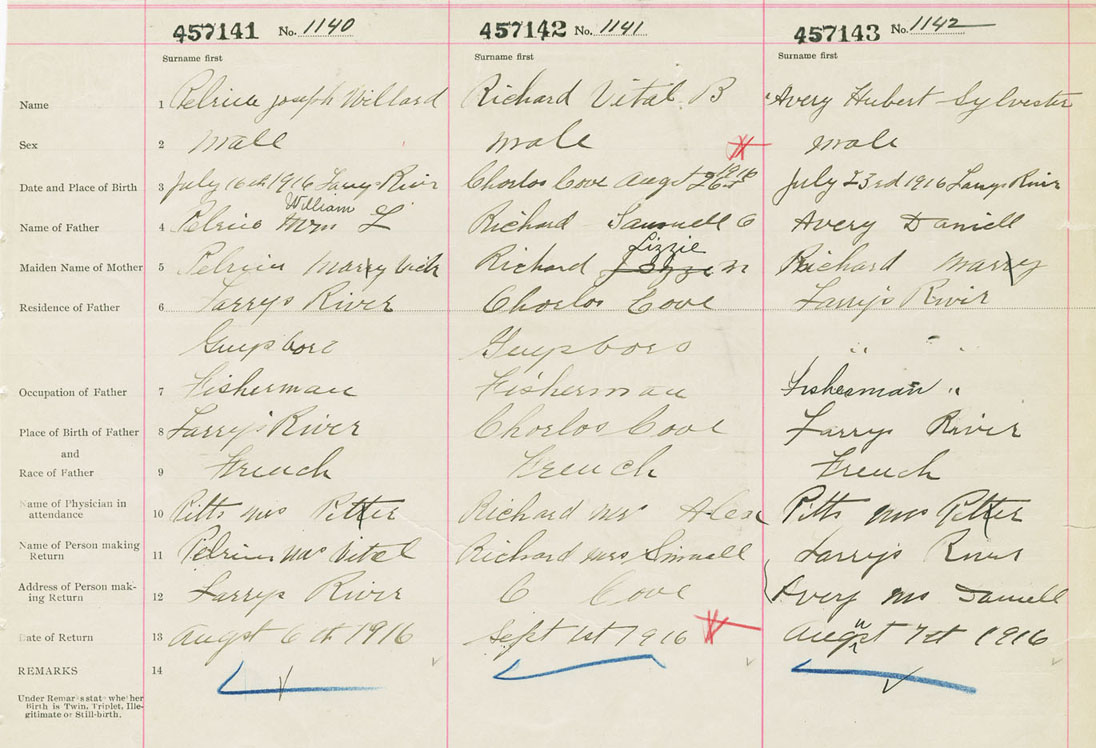 457141 No. 1140 457142 No. 1141 457143 No. 1142
Surname first Surname first Surname first
Name 1 Pelrine Joseph Willard Richard Vital B Avery Hubert Sylvester
Sex 2 Male Male Male
1916
Date and Place of Birth 3 July 16th 1916 Larrys River Charlos Cove Augst July 23rd 1916 Larrys River
William
Name of Father 4 Pelrine Wm L Richard C Avery Daniell
Lizzie
Maiden Name of Mother 5 Pelrine Mary Richard Richard Mary
Residence of Father 6 Larrys River Charlos Cove Larry's River
Guysboro Guysboro " "
Occupation of Father 7 Fisherman Fisherman Fisherman "
Place of Birth of Father 8 Larry's River Charlos Cove Larrys River
and
Race of Father 9 French French French
Name of Physician in
attendance 10 Pitts Mrs Richard Mrs Alex Pitts Mrs
Name of Person making
Return 11 Pelrine Mrs Vital Richard Mrs Larrys River
Address of Person mak-
ing Return 12 Larrys River C Cove Avery Mrs Daniell
Date of Return 13 Augst 6th 1916 Sept 1st 1916 1916
REMARKS 14
Under Remarks state whether
Birth is Twin, Triplet, Ille-
gitimate or Still-birth.